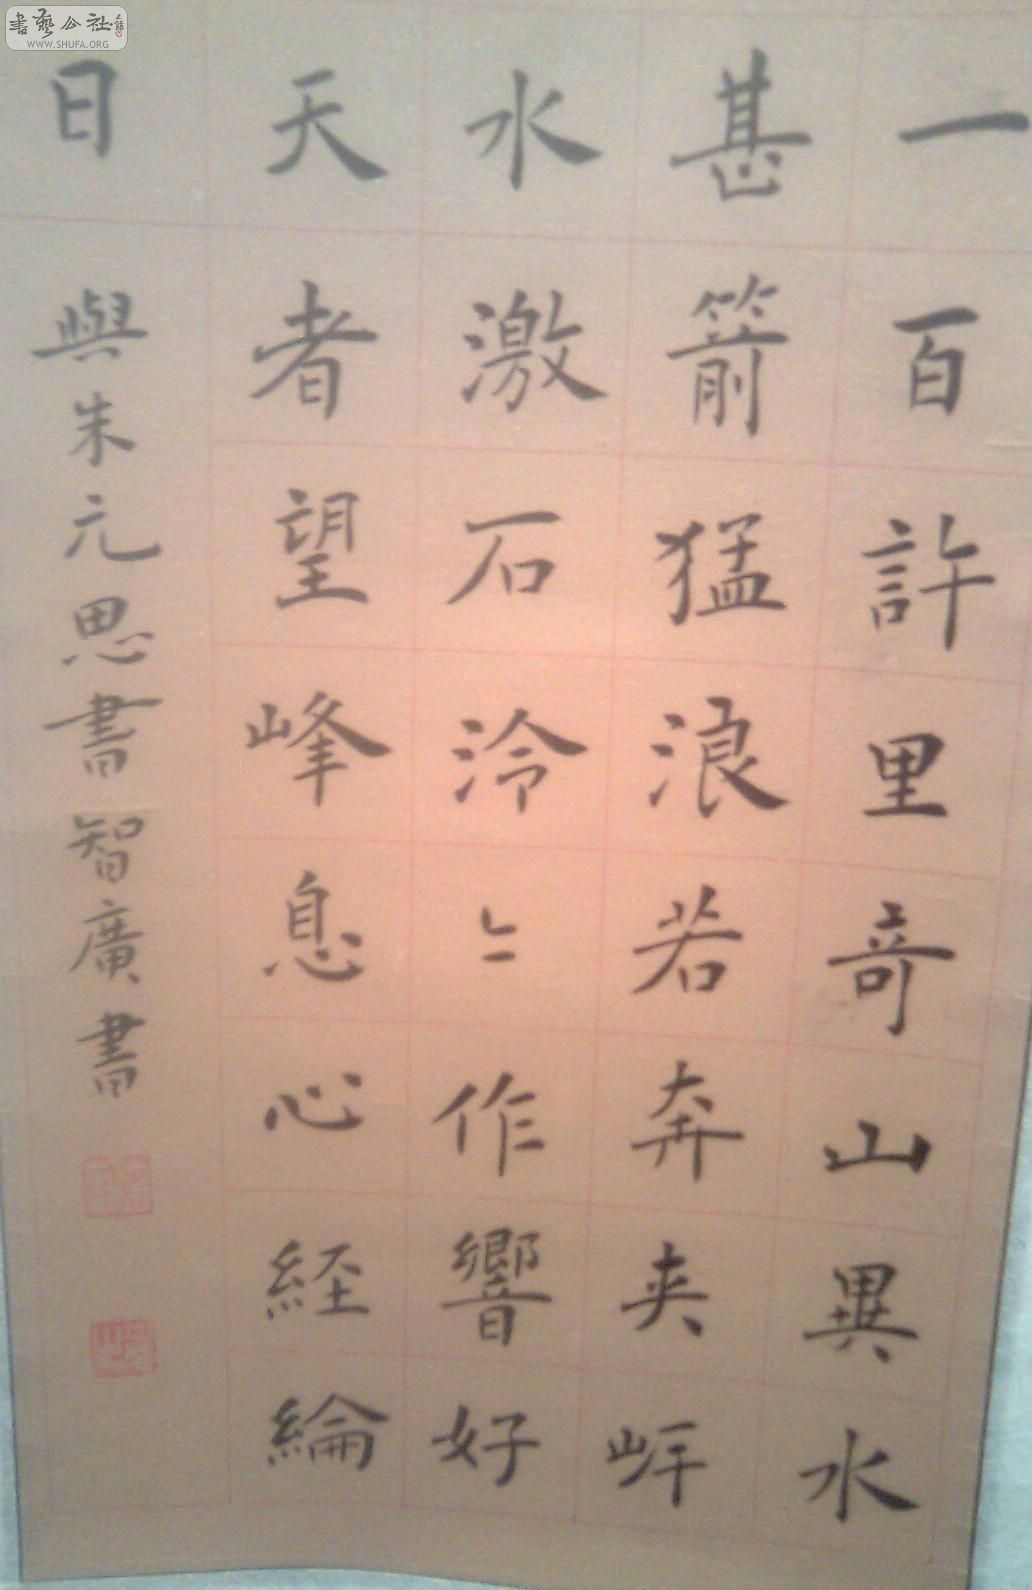 書藝公社
WWW.SHUFA.ORG
一百許里奇山異水
甚箭猛浪若奔夹㟁
水激石泠〻作響好
天者望峰息心経綸
日與朱元思書智廣書